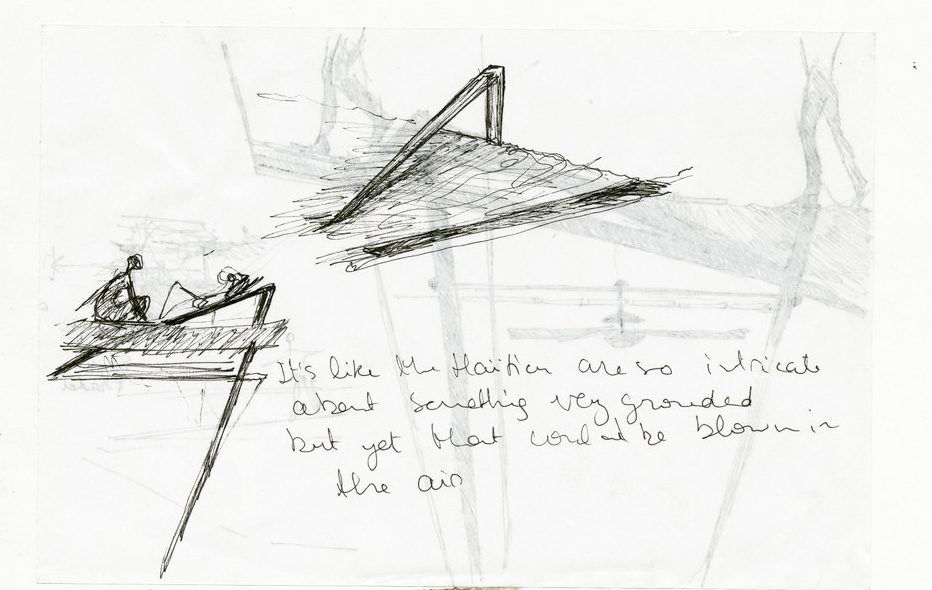 It's like the Haitien are so intricate
about something very grounded
but yet that could be blown in
the air